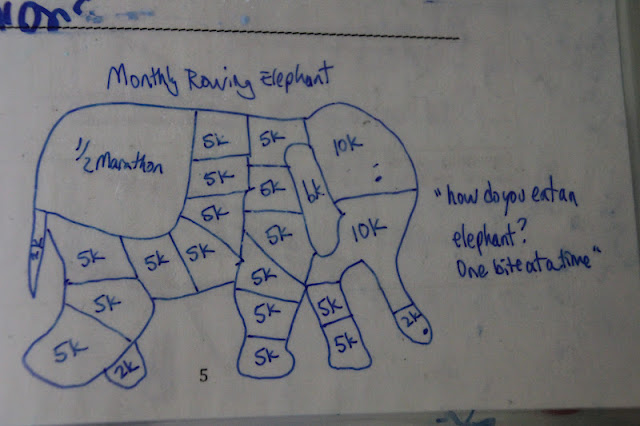 Monthly Rowing Elephant
1/2 Marathon
5k
5k
10k
5k
5k
6k
5k
5k
10k
5k
5k
5k
5k
5k
5k
5k
5k
5k
5k
2k
2k
5
"how do you eat an
elephant?
One bite at a time"